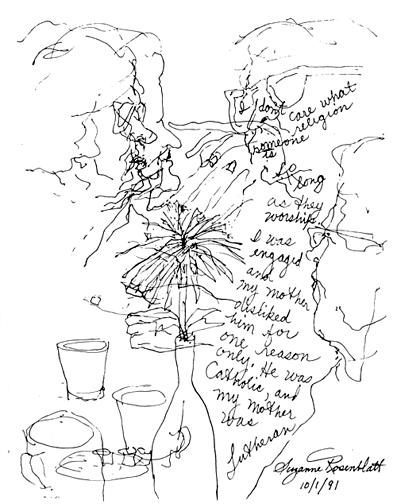 I don't
care what
religion
someone
is
so long
as they
worship.
I was
engaged
and
my mother
disliked
him for
one reason
only. He was
Catholic, and
my mother
was
Lutheran
Suzanne Rosenblatt
10/1/91